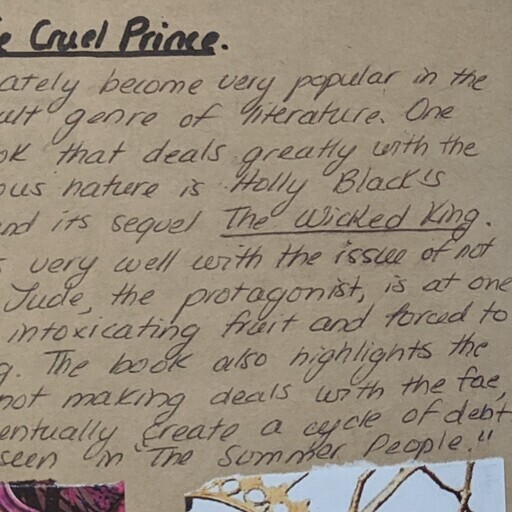 e Cruel Prince.
ately become very popular in the
ult genre of literature. One
ok that deals greatly with the
ous nature is Holly Black's
nd its sequel The Wicked King.
s very well with the issue of not
Jude, the protagonist, is at one
intoxicating fruit and forced to
g. The book also highlights the
not making deals with the fae,
entually create a cycle of debt
seen in "The Summer People."